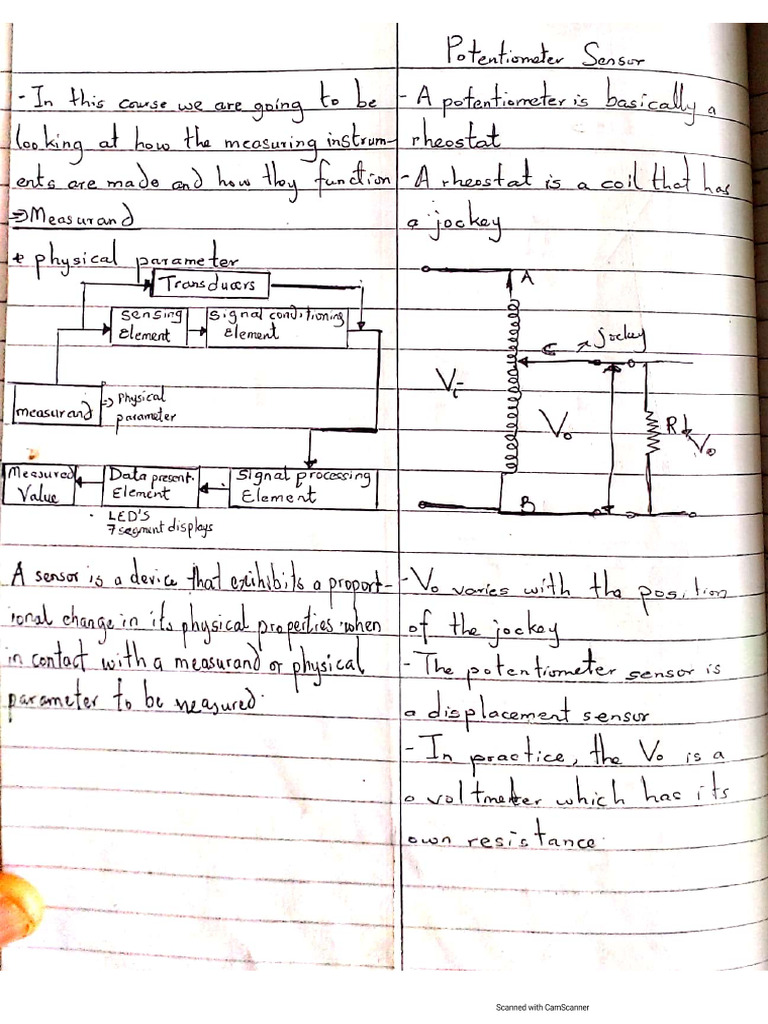 - In this course we are going to be
looking at how the measuring instrum-
ents are made and how they function
⇒ Measurand
* physical parameter
Transducers
Sensing
Element
Signal conditioning
Element
measurand
⇒ Physical
parameter
Measured
Value
Data present.
Element
Signal processing
Element
. LED'S
7 segment displays
A sensor is a device that exihibits a proport-
ional change in its physical properties when
in contact with a measurand or physical
parameter to be measured.
Potentiometer Sensor
- A potentiometer is basically a
rheostat
- A rheostat is a coil that has
a jockey
A
jockey
C
Vi
Vo
R
Vo
B
- Vo varies with the position
of the jockey
- The potentiometer sensor is
a displacement sensor
- In practice, the Vo is a
a voltmeter which has its
own resistance.
Scanned with CamScanner